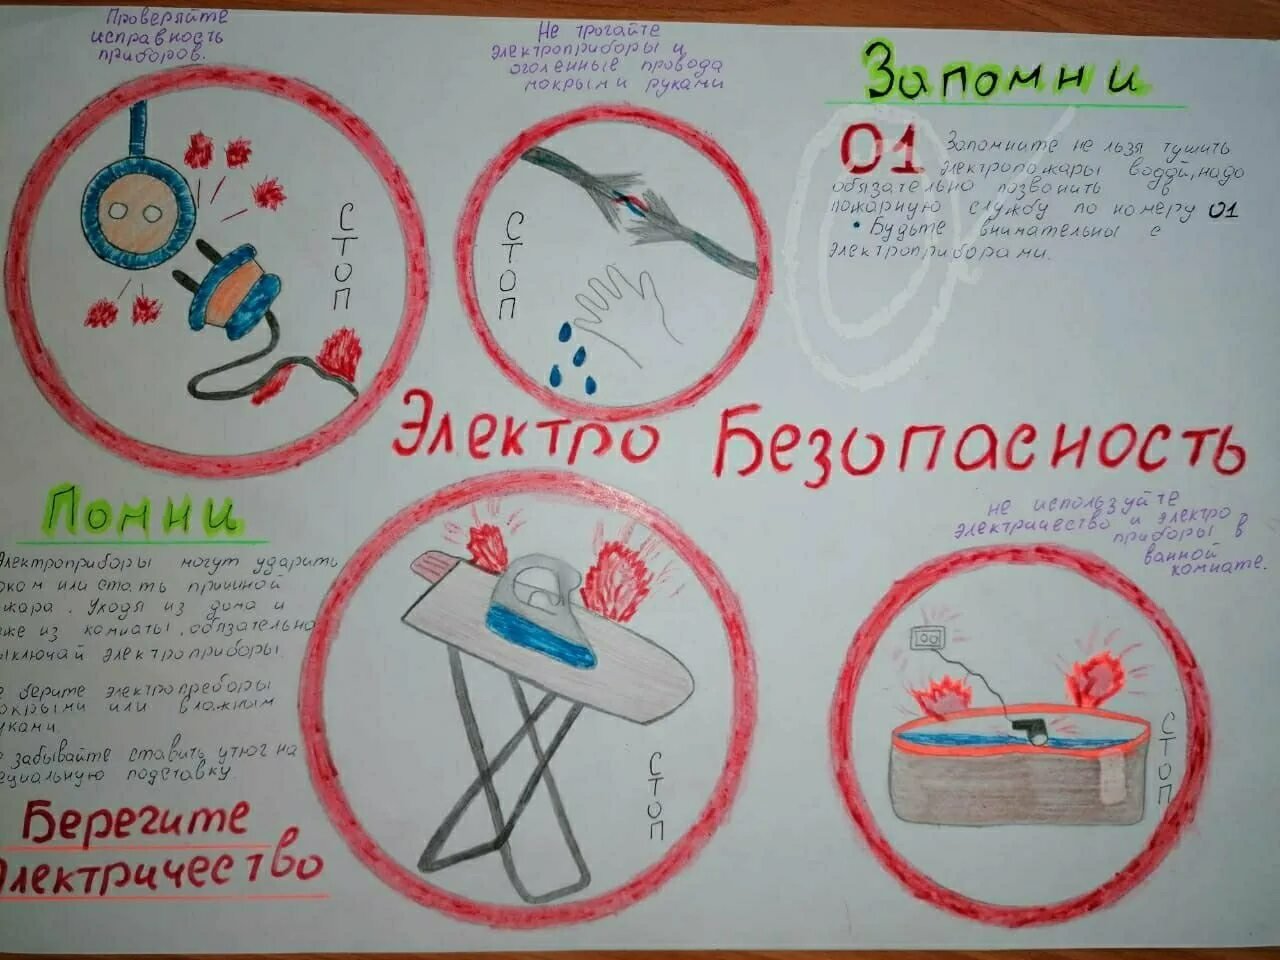 Проверяйте
исправность
приборов.
Не трогайте
электроприборы и
оголенные провода
мокрыми руками
Запомни
01
Запомните не льзя тушить
электропожары водой, надо
обязательно позвонить в
пожарную службу по номеру 01
• Будьте внимательны с
электроприборами.
СТОП
СТОП
Электро Безопасность
Помни
электроприборы могут ударить
оком или стать причиной
жара. Уходя из дома и
же из комнаты, обязательно
ыключай электроприборы.
е берите электропреборы
окрыми или влажным
уками.
е забывайте ставить утюг на
ециальную подставку.
Берегите
электричество
СТОП
не используйте
электричество и электро
приборы в
ванной
комнате.
СТОП